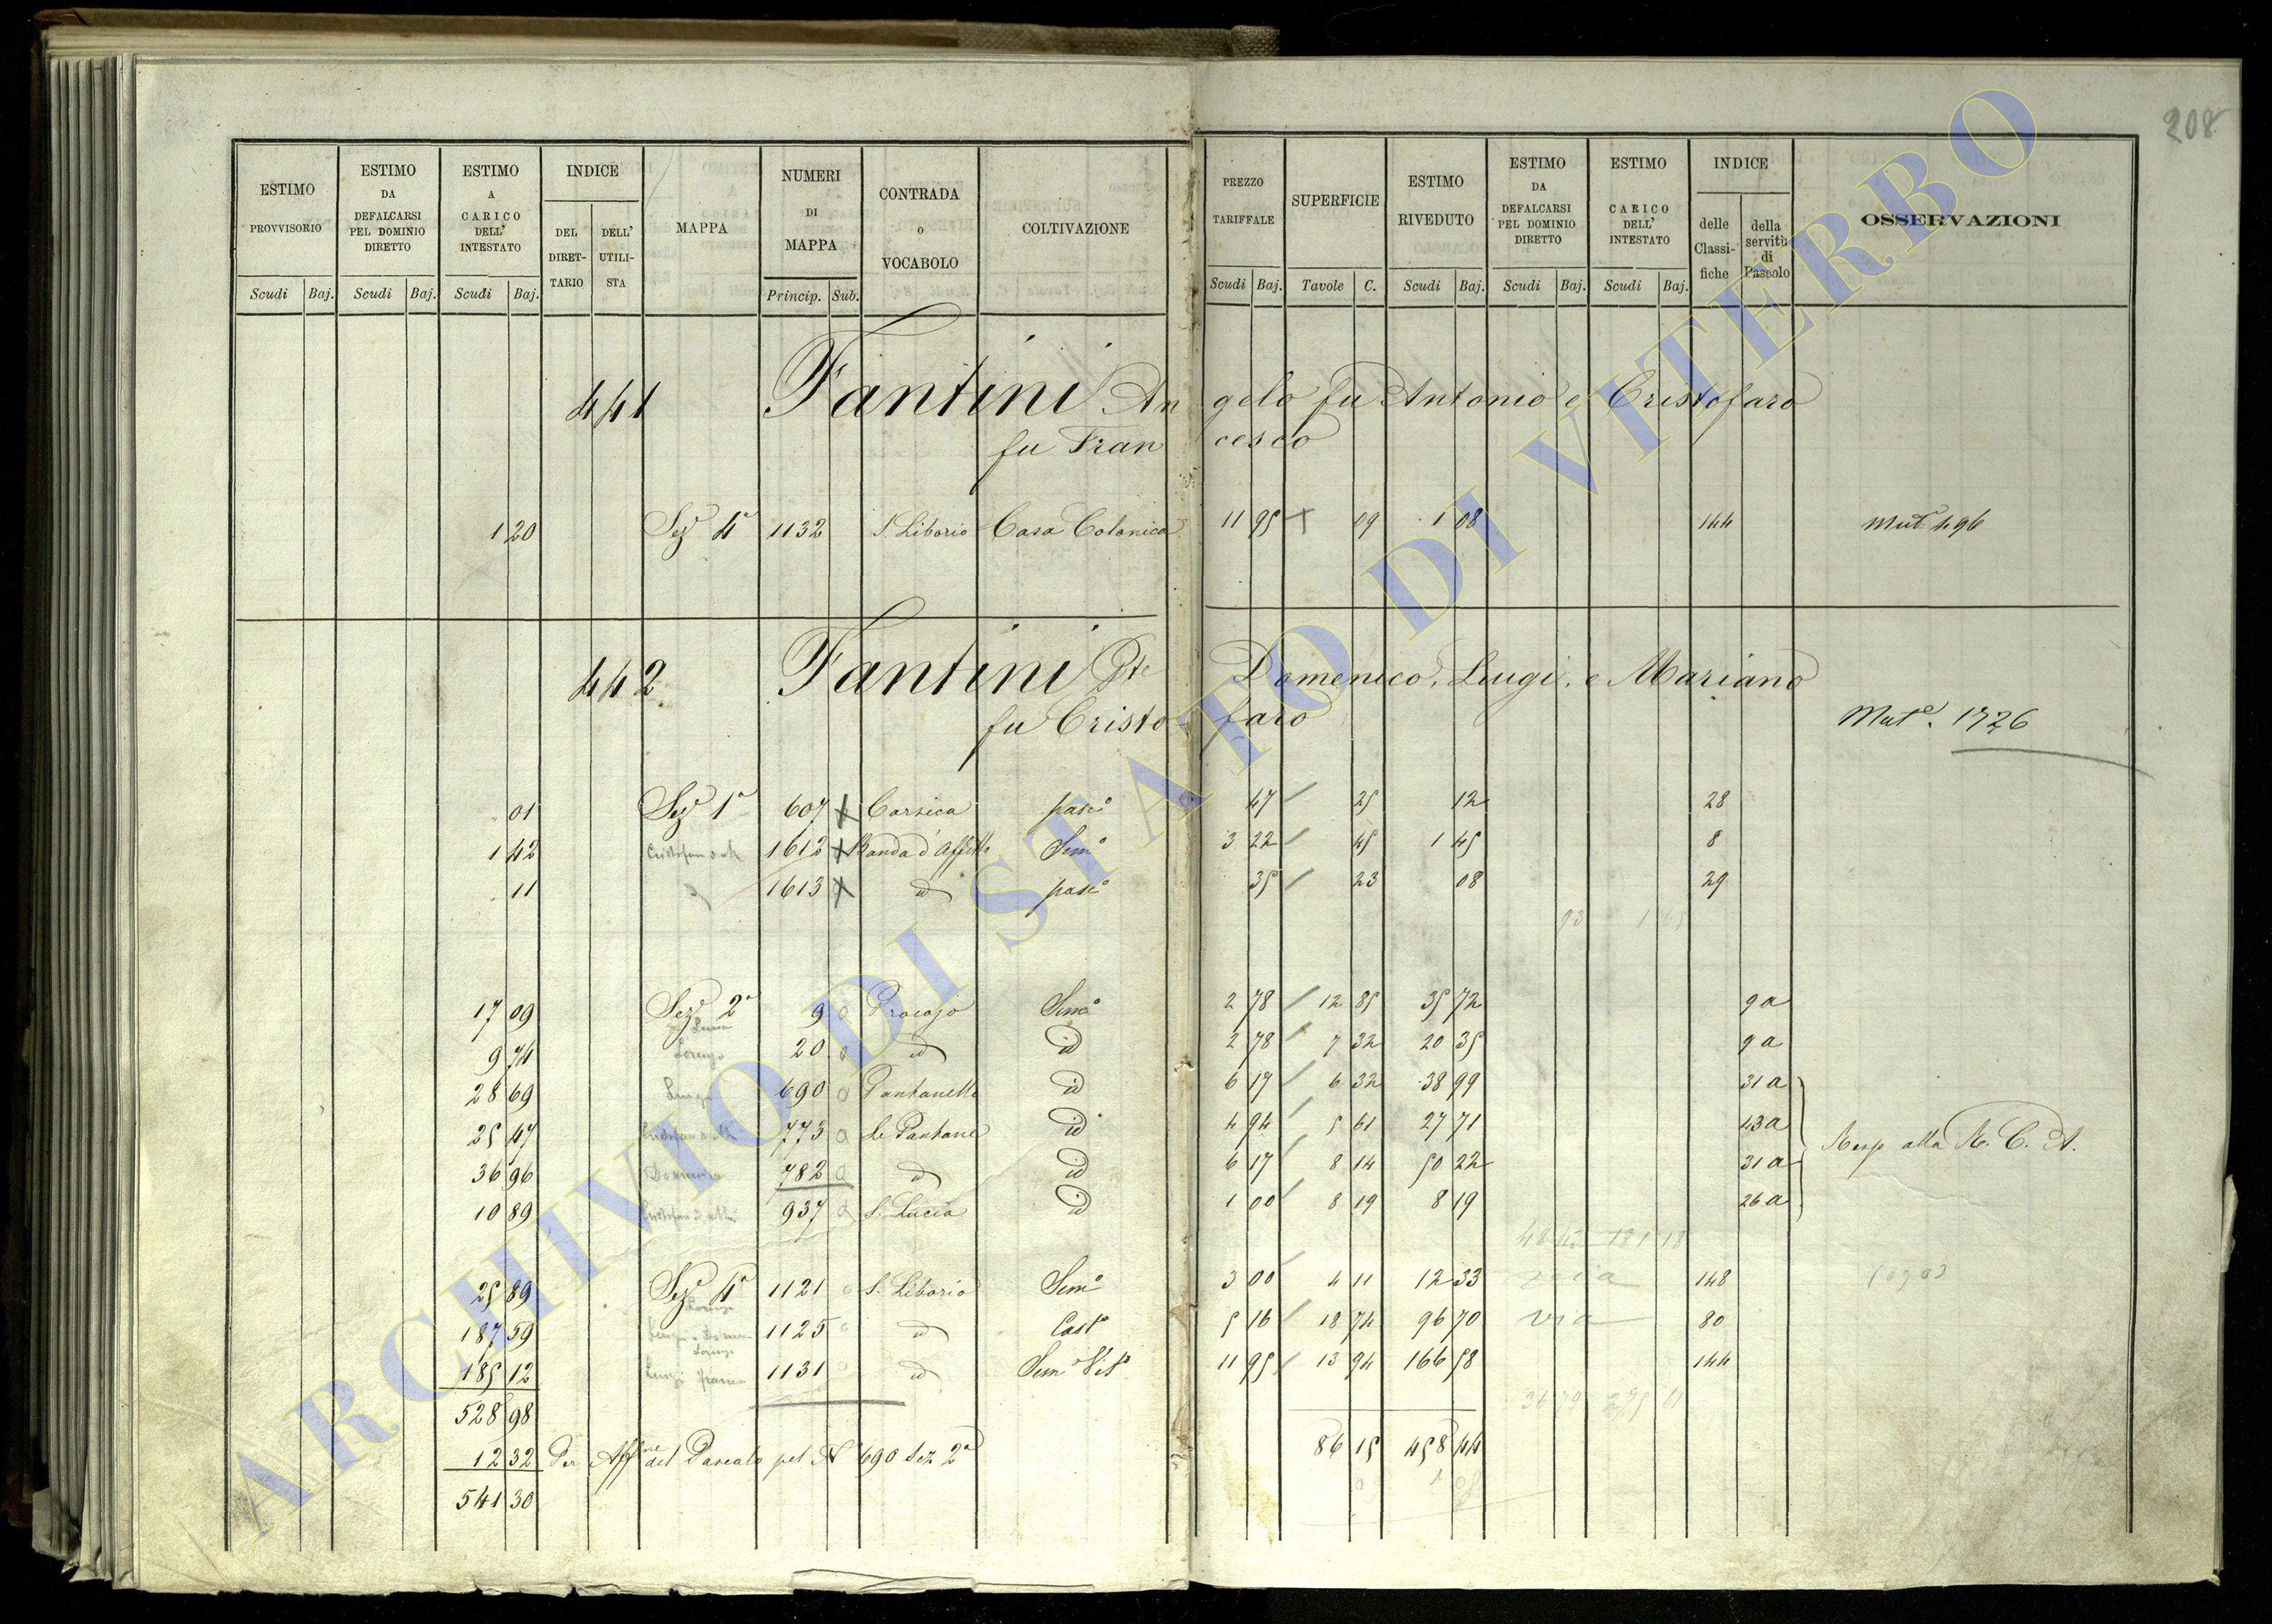 208
ESTIMO PROVVISORIO Scudi Baj.
ESTIMO DA DEFALCARSI PEL DOMINIO DIRETTO Scudi Baj.
ESTIMO A CARICO DELL' INTESTATO Scudi Baj.
INDICE DEL DIRETTARIO DELL' UTILISTA
MAPPA
NUMERI DI MAPPA Princip. Sub.
CONTRADA o VOCABOLO
COLTIVAZIONE
PREZZO TARIFFALE Scudi Baj.
SUPERFICIE Tavole C.
ESTIMO RIVEDUTO Scudi Baj.
ESTIMO DA DEFALCARSI PEL DOMINIO DIRETTO Scudi Baj.
ESTIMO A CARICO DELL' INTESTATO Scudi Baj.
INDICE delle Classifiche della servitù di Pascolo
OSSERVAZIONI
441 Fantini Angelo fu Antonio e Cristofaro
fu Francesco
1 20 Sez 4ª 1132 S. Liborio Casa Colonica 11 95 09 1 08 144 Mut. 496
442 Fantini Domenico, Luigi, e Mariano
fu Cristofaro
Mut.e 1726
01 Sez 1ª 607 Corsica pasc° 47 25 12 28
1 42 1612 Banda d'Affitto Sem° 3 22 45 1 45 8
11 1613 id pasc° 35 23 08 29
17 09 Sez 2ª 9 Procojo Sem° 2 78 12 85 35 72 9a
9 74 Lorenzo 20 id id 2 78 7 32 20 35 9a
28 69 Luigi 690 Pantanelle id 6 17 6 32 38 99 31a
25 47 773 Le Pantane id 4 94 5 61 27 71 43a
36 96 Domenico 782 id id 6 17 8 14 50 22 31a
10 89 937 S. Lucia id 1 00 8 19 8 19 26a
Resp alla R. C. A.
25 89 Sez 4ª 1121 S. Liborio Sem° 3 00 4 11 12 33 148
187 59 1125 id Cast° 5 16 18 74 96 70 via 80
185 12 1131 id Sem° Vit° 11 95 13 94 166 58 144
528 98
86 15 458 44
12 32 Per Aff.ne del Pascolo pel N° 690 Sez 2ª
541 30
ARCHIVIO DI STATO DI VITERBO